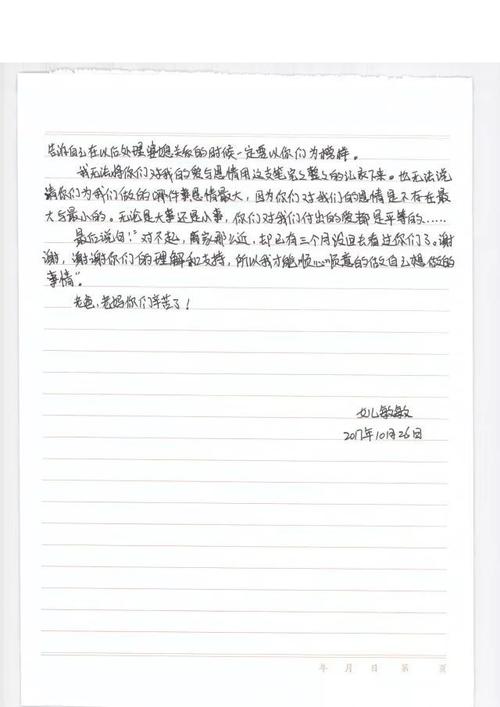 告诉自己在以后处理婚姻关系的时候一定要以你们为榜样。
我无法将你们对我的爱与恩情用这支笔完完整整的记录下来。也无法说
清你们为我们做的哪件事恩情最大，因为你们对我们的恩情是不存在最
大与最小的。无论是大事还是小事，你们对我们付出的爱都是平等的……
最后说句：“对不起，离家那么近，却已有三个月没回去看过你们了。谢
谢，谢谢你们的理解和支持，所以我才能顺心顺意的做自己想做的
事情”。
老爸、老妈你们辛苦了！
女儿敏敏
2017年10月26日
年 月 日 第 页